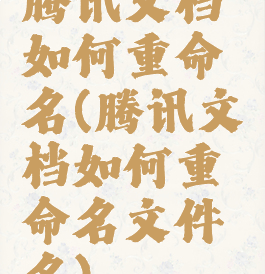 腾讯文档
如何重命
名(腾讯文
档如何重
命名文件
名)